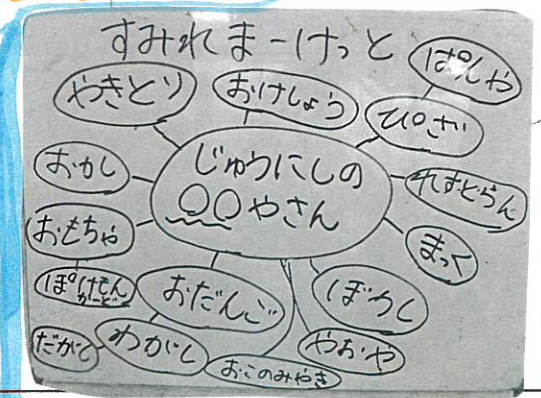 すみれまーけっと
ぱんや
やきとり
おけしょう
ぴざ
じゅうにしの
〇〇やさん
おかし
れすとらん
おもちゃ
まっく
ぽけもん
かーど
おだんご
ぼうし
だがし
わがし
おこのみやき
やおや